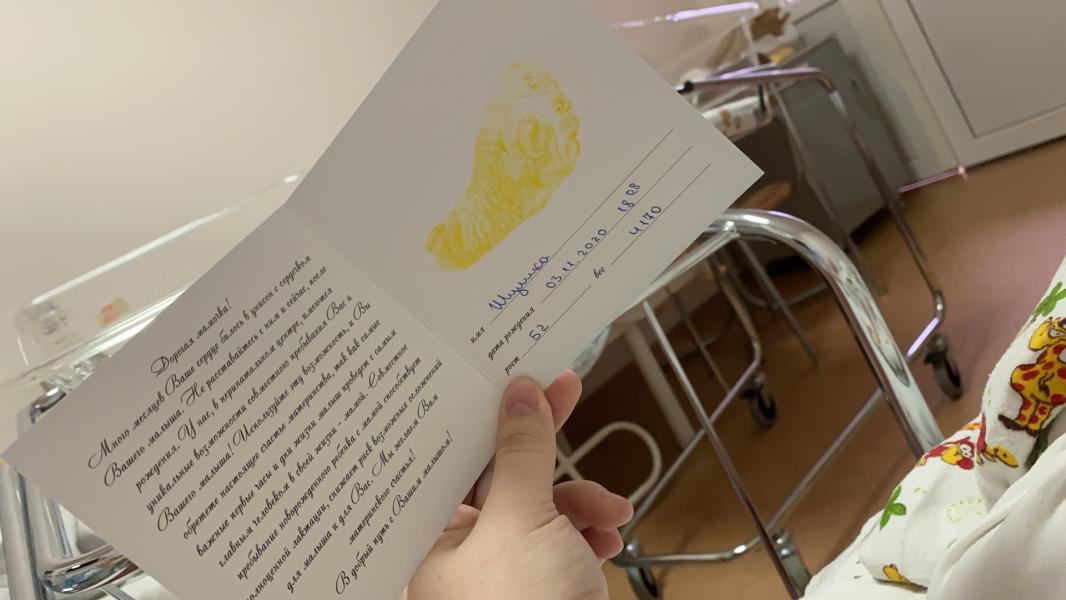 Дорогая мамочка!
Много месяцев Ваше сердце билось в унисон с сердечком
Вашего малыша. Не расставайтесь с ним и сейчас, после
рождения. У нас, в перинатальном центре, имеются
уникальные возможности совместного пребывания Вас и
Вашего малыша! Используйте эту возможность, и Вы
обретете настоящее счастье материнства, так как самые
важные первые часы и дни жизни малыш проведет с самым
главным человеком в своей жизни - мамой. Совместное
пребывание новорожденного ребенка с мамой способствует
полноценной лактации, снижает риск возможных осложнений
для малыша и для Вас. Мы желаем Вам
материнского счастья!
В добрый путь с Вашим малышом!
имя
дата рождения 03.11.2020 18 08
рост 52 вес 4170